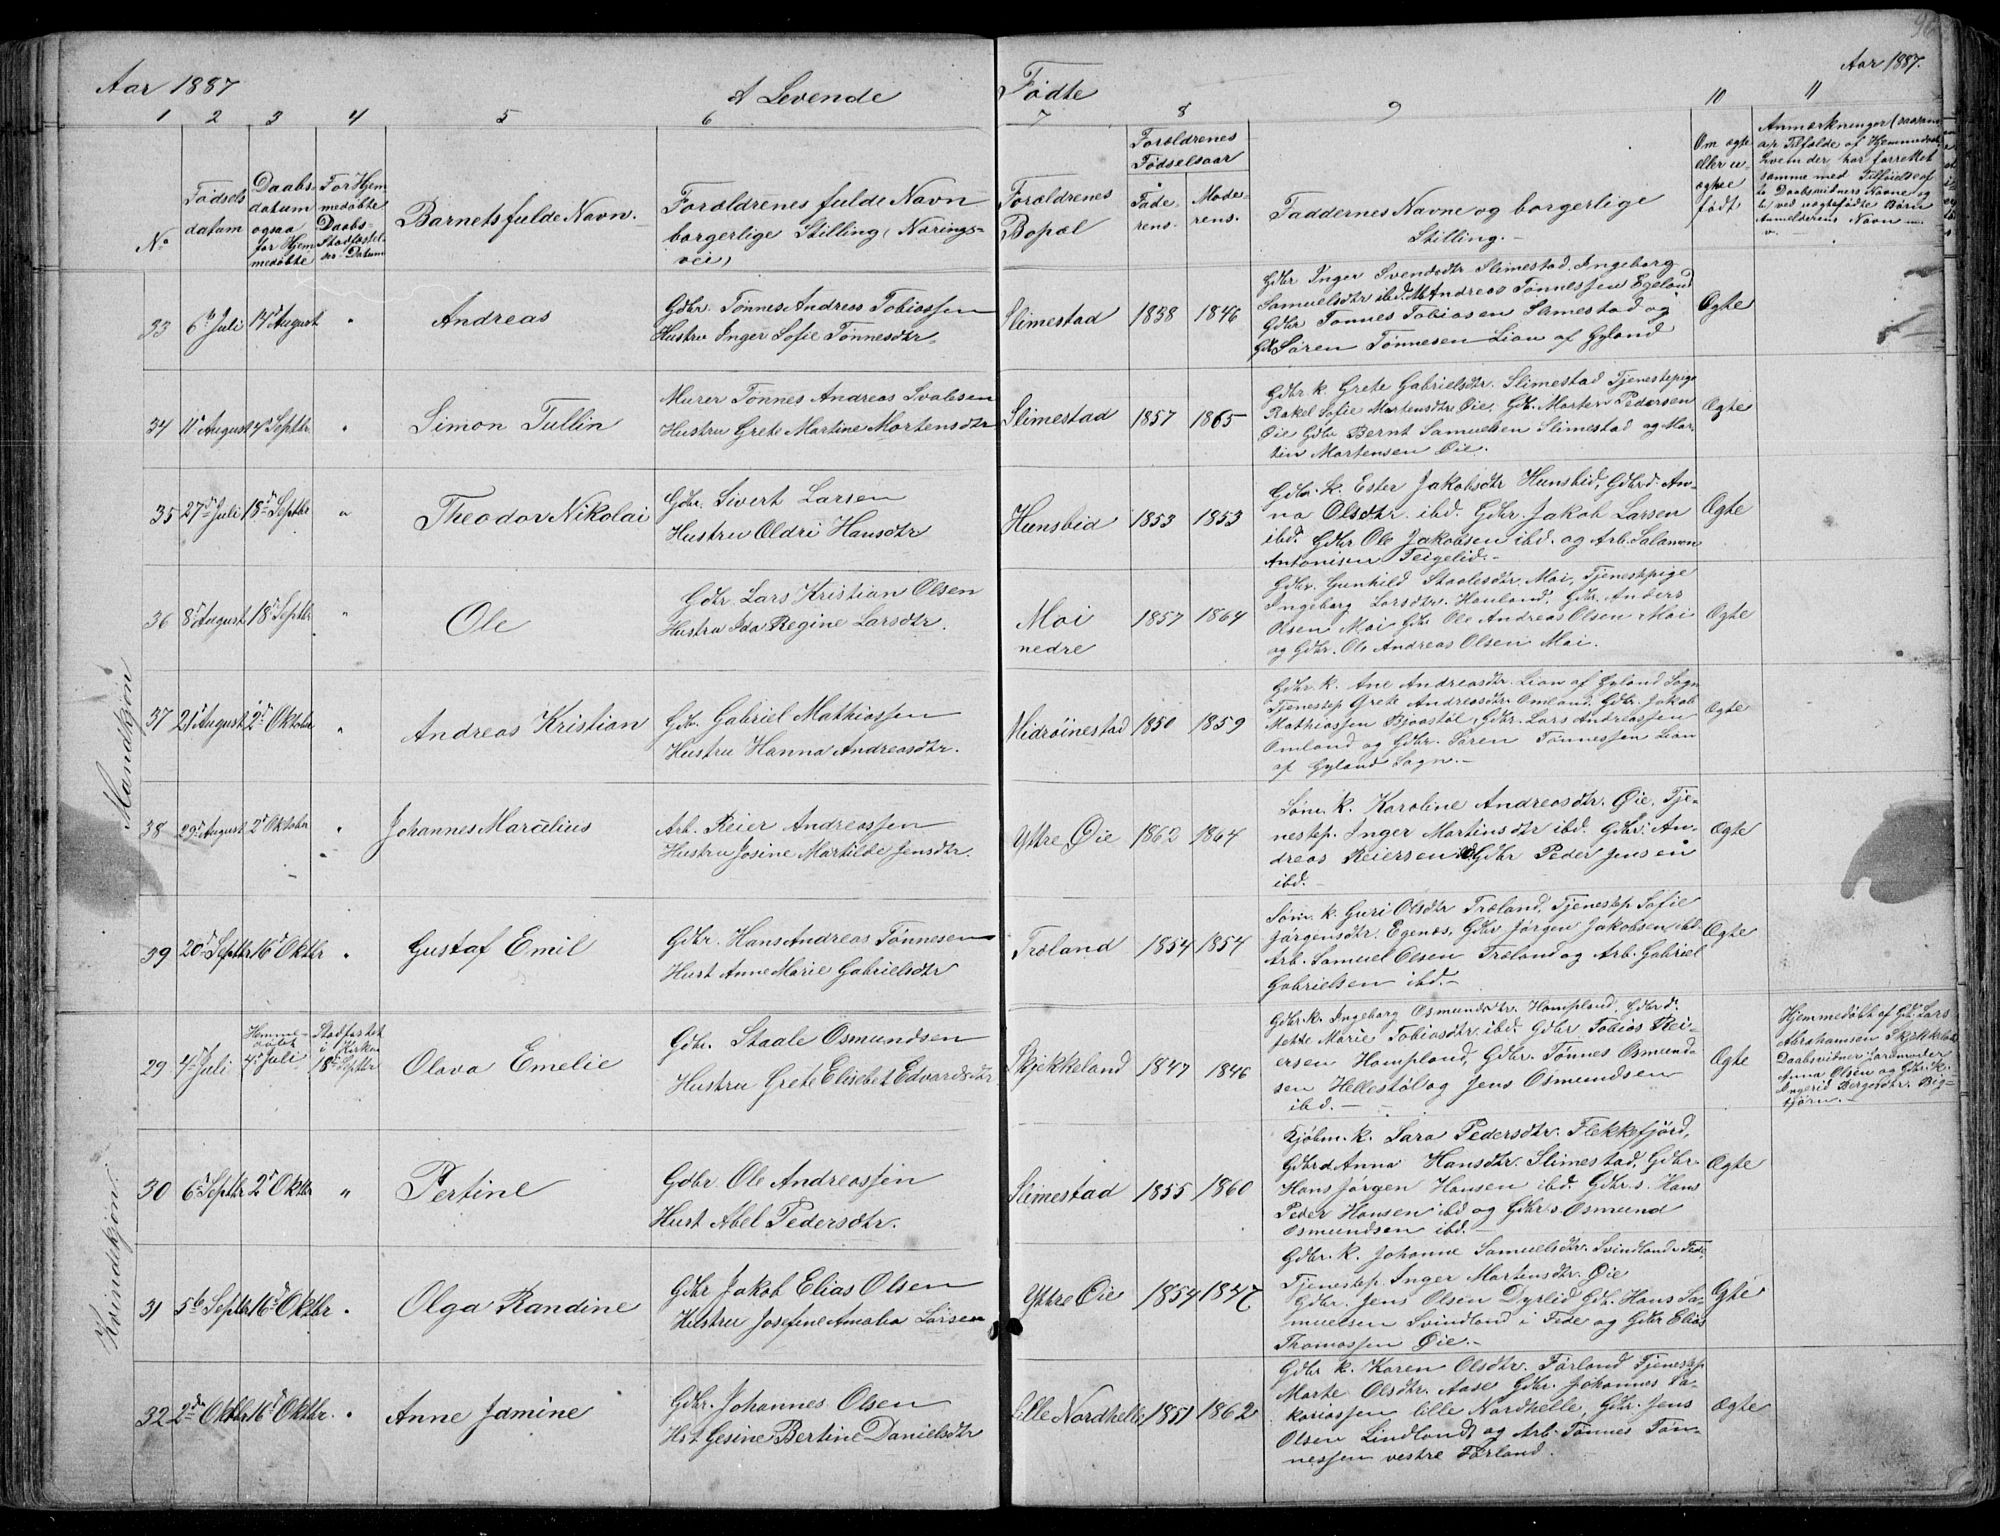 96
Aar 1887
A Levende
Fødte
Aar 1887.
1 2 3 4 5 6 7 8 9 10 11
No
Fødsels
datum
Daabs-
datum
ogsaa
for Hjem
medøbte
For Hjem
medøbte
Daabs-
Stadfæstel-
ses-Datum
Barnets fulde Navn.
Forældrenes fulde Navn
borgerlige Stilling (Nærings-
vei)
Forældrenes
Bopæl
Forældrenes
Fødselsaar
Fade-
rens.
Mode-
rens.
Faddernes Navne og borgerlige
Stilling.-
Om ægte
eller u-
ægte
født
Anmærkninger (saasom
Mandkjøn
33 6te Juli 14de August " Andreas
Gdbr. Tønnes Andreas Tobiassen
Hustru Inger Sofie Tønnesdtr.
Slimestad 1858 1846
Gdbr Inger Svendsdtr Slimestad, Ingeborg
Samuelsdtr ibd. Andreas Tønnessen Egeland
Gdbr Tønnes Tobiasen Slimestad og
Søren Tønnesen Lian af Gyland
Ægte
34 11te August 4de Septbr " Simon Tullin
Murer Tønnes Andreas Svalesen
Hustru Grete Martine Mortensdtr
Slimestad 1857 1865
Gdbr k. Grete Gabrielsdtr. Slimestad Tjenestepige
Rakel Sofie Mortensdtr Øie, Gbr. Morten Pedersen
Øie Gdbr Bernt Samuelsen Slimestad og Mor-
ten Mortensen Øie.
Ægte
35 27de Juli 18de Septbr " Theodor Nikolai
Gdbr. Sivert Larsen
Hustru Oldri Hansdtr
Hunsbid 1853 1853
Gdbr. k. Ester Jakobsdtr Hunsbid, Gdbrd. An-
na Olsdtr. ibd. Gdbr. Jakob Larsen
ibd. Gdbr Ole Jakobsen ibd. og Arb. Salamon
Antonisen Teigelid.-
Ægte
36 8de August 18de Septbr " Ole
Gdbr. Lars Kristian Olsen
Hustru Ida Regine Larsdtr.
Moi
nedre
1857 1864
Gdbr. Gunhild Staalesdtr. Moi, Tjenestepige
Ingeborg Larsdtr. Hauland, Gdbr. Anders
Olsen Moi Gdbr Ole Andreas Olsen Moi
og Gdbr. Ole Andreas Olsen Moi.
Ægte
37 21de August 2de Oktober " Andreas Kristian
Gdbr. Gabriel Mathiassen
Hustru Hanna Andreasdtr.
Midtøinestad 1850 1859
Gdbr. k. Ane Andreasdtr. Lian af Gyland Sogn
Tjenestep Grete Andreasdtr Omland, Gdbr. Jakob
Mathiassen Bjaastøl, Gdbr. Lars Andreassen
Omland og Gdbr. Søren Tønnessen Lian
af Gyland Sogn.-
Ægte
38 29de August 2de Oktober " Johannes Marcelius
Arb. Reier Andreassen
Hustru Josine Martilde Jensdtr.
Yttre Øie 1862 1864
Søm. k. Karoline Andreasdtr. Øie, Tje-
nestep. Inger Martinsdtr ibd. Gdbr. An-
dreas Reiersen ibd Gdbr Peder Jensen
ibd.-
Ægte
39 20de Septbr 16de Oktbr " Gustaf Emil
Gdbr. Hans Andreas Tønnesen
Hust Anne Marie Gabrielsdtr
Træland 1854 1854
Søm. k. Guri Olsdtr Træland, Tjenestep Sofie
Jørgensdtr. Egenæs, Gdbr Jørgen Jakobsen ibd.
Arb. Samuel Olsen Træland og Arb. Gabriel
Gabrielsen ibd.-
Ægte
Kvindekjøn.
29 4de Juli Hemme-
døbt
4de Juli Stadfæstet
i Kirken
18de Septbr Olava Emelie
Gdbr. Staale Osmundsen
Hustru Grete Elisebet Edvardsdtr
Skjekkeland 1847 1846
Gdbr k. Ingeborg Osmundsdtr. Hompland, Gdbrd.
Marie Tobiasdtr. ibd. Gdbr Tobias Rei-
ersen Hompland, Gdbr. Tønnes Osmund-
sen Hellestøl og Jens Osmundsen
ibd.-
Ægte
Hjemmedøbt af Gbr. Lars
Abrahamsen Skjekkeland
Daabsvidner Jordmoder
Anna Olsen og Gbr. k.
Ingerid Bergesdtr. Big-
tjørn.-
30 6te Septbr 2de Oktbr " Pertine
Gdbr. Ole Andreassen
Hust Abel Pedersdtr.
Slimestad 1855 1860
Kjøbm. k. Sara Pedersdtr. Flekkefjord,
Gdbrd Anna Hansdtr. Slimestad, Gdbr.
Hans Jørgen Hansen ibd. Gdbr. s. Hans
Peder Hansen ibd og Gdbr s. Osmund
Osmundsen ibd.-
Ægte
31 5te Septbr 16de Oktbr " Olga Randine
Gdbr Jakob Elias Olsen
Hustru Josefine Amalia Larsen
Yttre Øie 1854 1847
Gdbr. k. Johanne Samuelsdtr. Svindland i Fede
Tjenestep. Inger Martensdtr. Øie
Gdbr. Jens Olsen Dyrlid Gdb. Hans Sa-
muelsen Svindland i Fede og Gdbr Elias
Thomassen Øie.-
Ægte
32 2den Oktbr 16de Oktbr. " Anne Jamine
Gdbr. Johannes Olsen
Hst Gesine Bertine Danielsdtr
Lille Nordhelle 1851 1862
Gdbr k. Karen Olsdtr. Førland Tjenestep
Marte Olsdtr. Aase Gdbr. Johannes Sa-
kariassen Lille Nordhelle, Gdbr. Jens
Olsen Lindland og Arb. Tønnes Tøn-
nessen vestre Førland.
Ægte